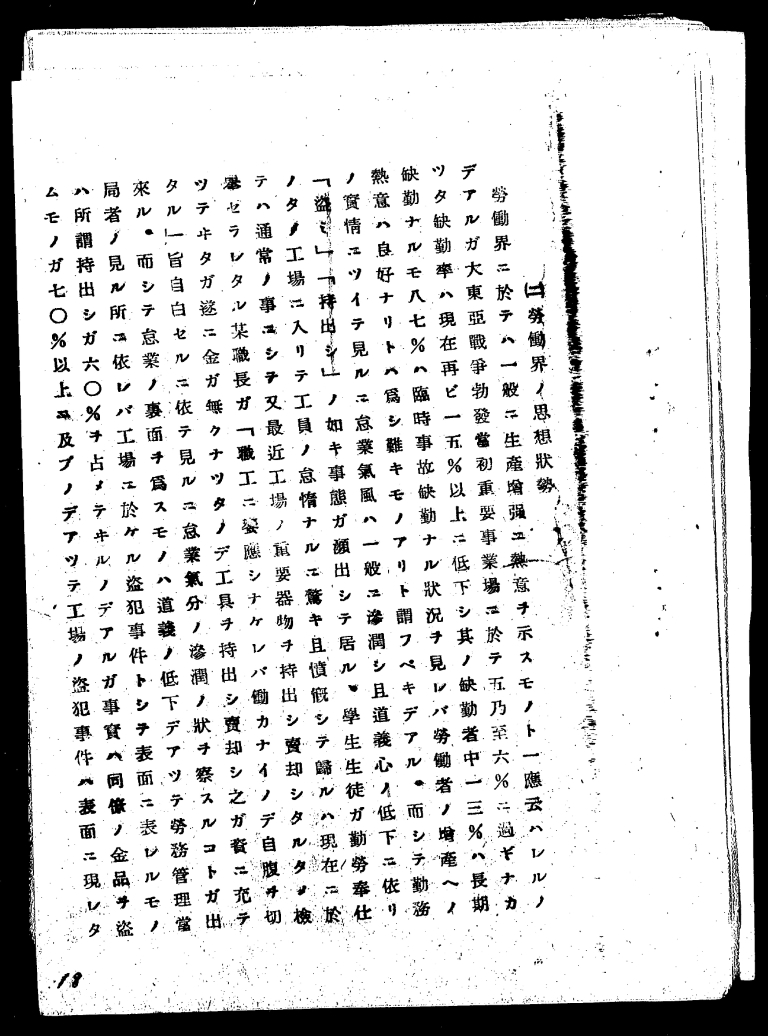 ㈡勞働界ノ思想狀勢
勞働界ニ於テハ一般ニ生產增强ニ熱意ヲ示スモノト一應云ハレルノ
デアルガ大東亞戰爭勃發當初重要事業場ニ於テ五乃至六％ニ過ギナカ
ツタ缺勤率ハ現在再ビ一五％以上ニ低下シ其ノ缺勤者中一三％ハ長期
缺勤ナルモ八七％ハ臨時事故缺勤ナル狀況ヲ見レバ勞働者ノ增產ヘノ
熱意ハ良好ナリトハ爲シ難キモノアリト謂フベキデアル。而シテ勤務
ノ實情ニツイテ見ルニ怠業氣風ハ一般ニ滲潤シ且道義心ノ低下ニ依リ
「盜ミ」「持出シ」ノ如キ事態ガ頻出シテ居ル。學生生徒ガ勤勞奉仕
ノタメ工場ニ入リテ工員ノ怠惰ナルニ驚キ且憤慨シテ歸ルハ現在ニ於
テハ通常ノ事ニシテ又最近工場ノ重要器物ヲ持出シ賣却シタルタメ檢
擧セラレタル某職長ガ「職工ニ饗應シナケレバ働カナイノデ自腹ヲ切
ツテヰタガ遂ニ金ガ無クナツタノデ工具ヲ持出シ賣却シ之ガ資ニ充テ
タル」旨自白セルニ依テ見ルニ怠業氣分ノ滲潤ノ狀ヲ察スルコトガ出
來ル。而シテ怠業ノ裏面ヲ爲スモノハ道義ノ低下デアツテ勞務管理當
局者ノ見ル所ニ依レバ工場ニ於ケル盜犯事件トシテ表面ニ表レルモノ
ハ所謂持出シガ六〇％ヲ占メテヰルノデアルガ事實ハ同僚ノ金品ヲ盜
ムモノガ七〇％以上ニ及ブノデアツテ工場ノ盜犯事件ハ表面ニ現レタ
18